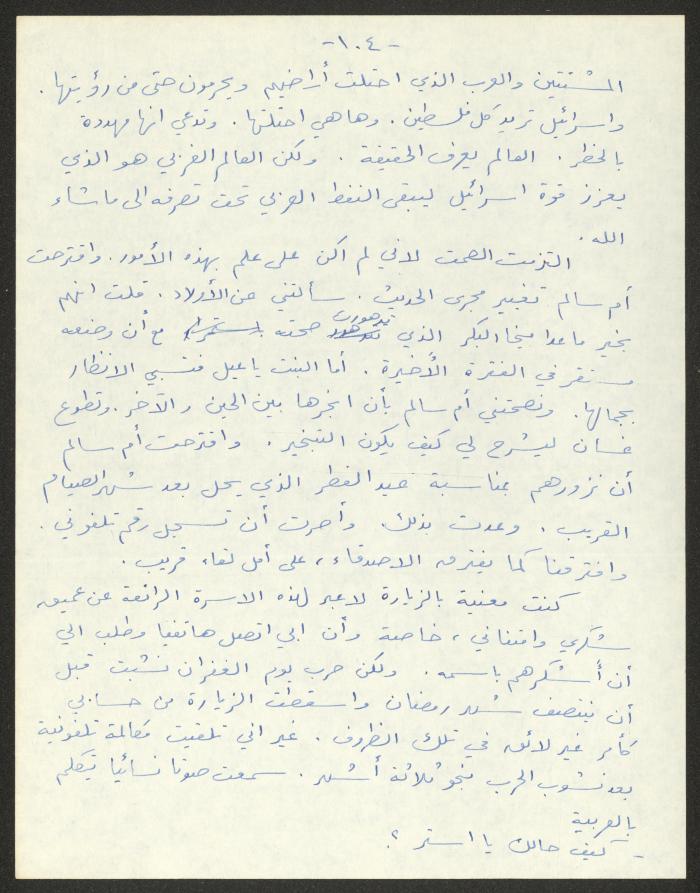 -١٠٤-
المشتتين والعرب الذي احتلت أراضيهم ويحرمون حتى من رؤيتها.
واسرائيل تريد كل فلسطين. وها هي احتلتها. وتدعي انها مهددة
بالخطر. العالم يعرف الحقيقة. ولكن العالم الغربي هو الذي
يعزز قوة اسرائيل ليبقى النفط العربي تحت تصرفه الى ما شاء
الله.
التزمت الصمت لاني لم اكن على علم بهذه الأمور. واقترحت
أم سالم تغيير مجرى الحديث. سألتني عن الأولاد. قلت انهم
بخير ما عدا ميخا البكر الذي تدهورت صحته باستمرار مع أن وضعه
مستقر في الفترة الأخيرة. أما البنت ياعيل فتسبي الانظار
بجمالها. ونصحتني أم سالم بأن ابخرها بين الحين والآخر. وتطوع
غسان ليشرح لي كيف يكون التبخير. واقترحت أم سالم
أن نزورهم بمناسبة عيد الفطر الذي يحل بعد شهر الصيام
القريب. وعدت بذلك. وأصرت أن تسجل رقم تلفوني.
وافترقنا كما يفترق الاصدقاء، على أمل لقاء قريب.
كنت معنية بالزيارة لاعبر لهذه الاسرة الرائعة عن عميق
شكري وامتناني، خاصة وأن ابي اتصل هاتفيا وطلب الي
أن أشكرهم باسمه. ولكن حرب يوم الغفران نشبت قبل
أن ينتصف شهر رمضان واسقطت الزيارة من حسابي
كأمر غير لائق في تلك الظروف. غير اني تلقيت مكالمة تلفونية
بعد نشوب الحرب بنحو ثلاثة أشهر. سمعت صوتا نسائيا يتكلم
بالعربية
- كيف حالك يا استر؟